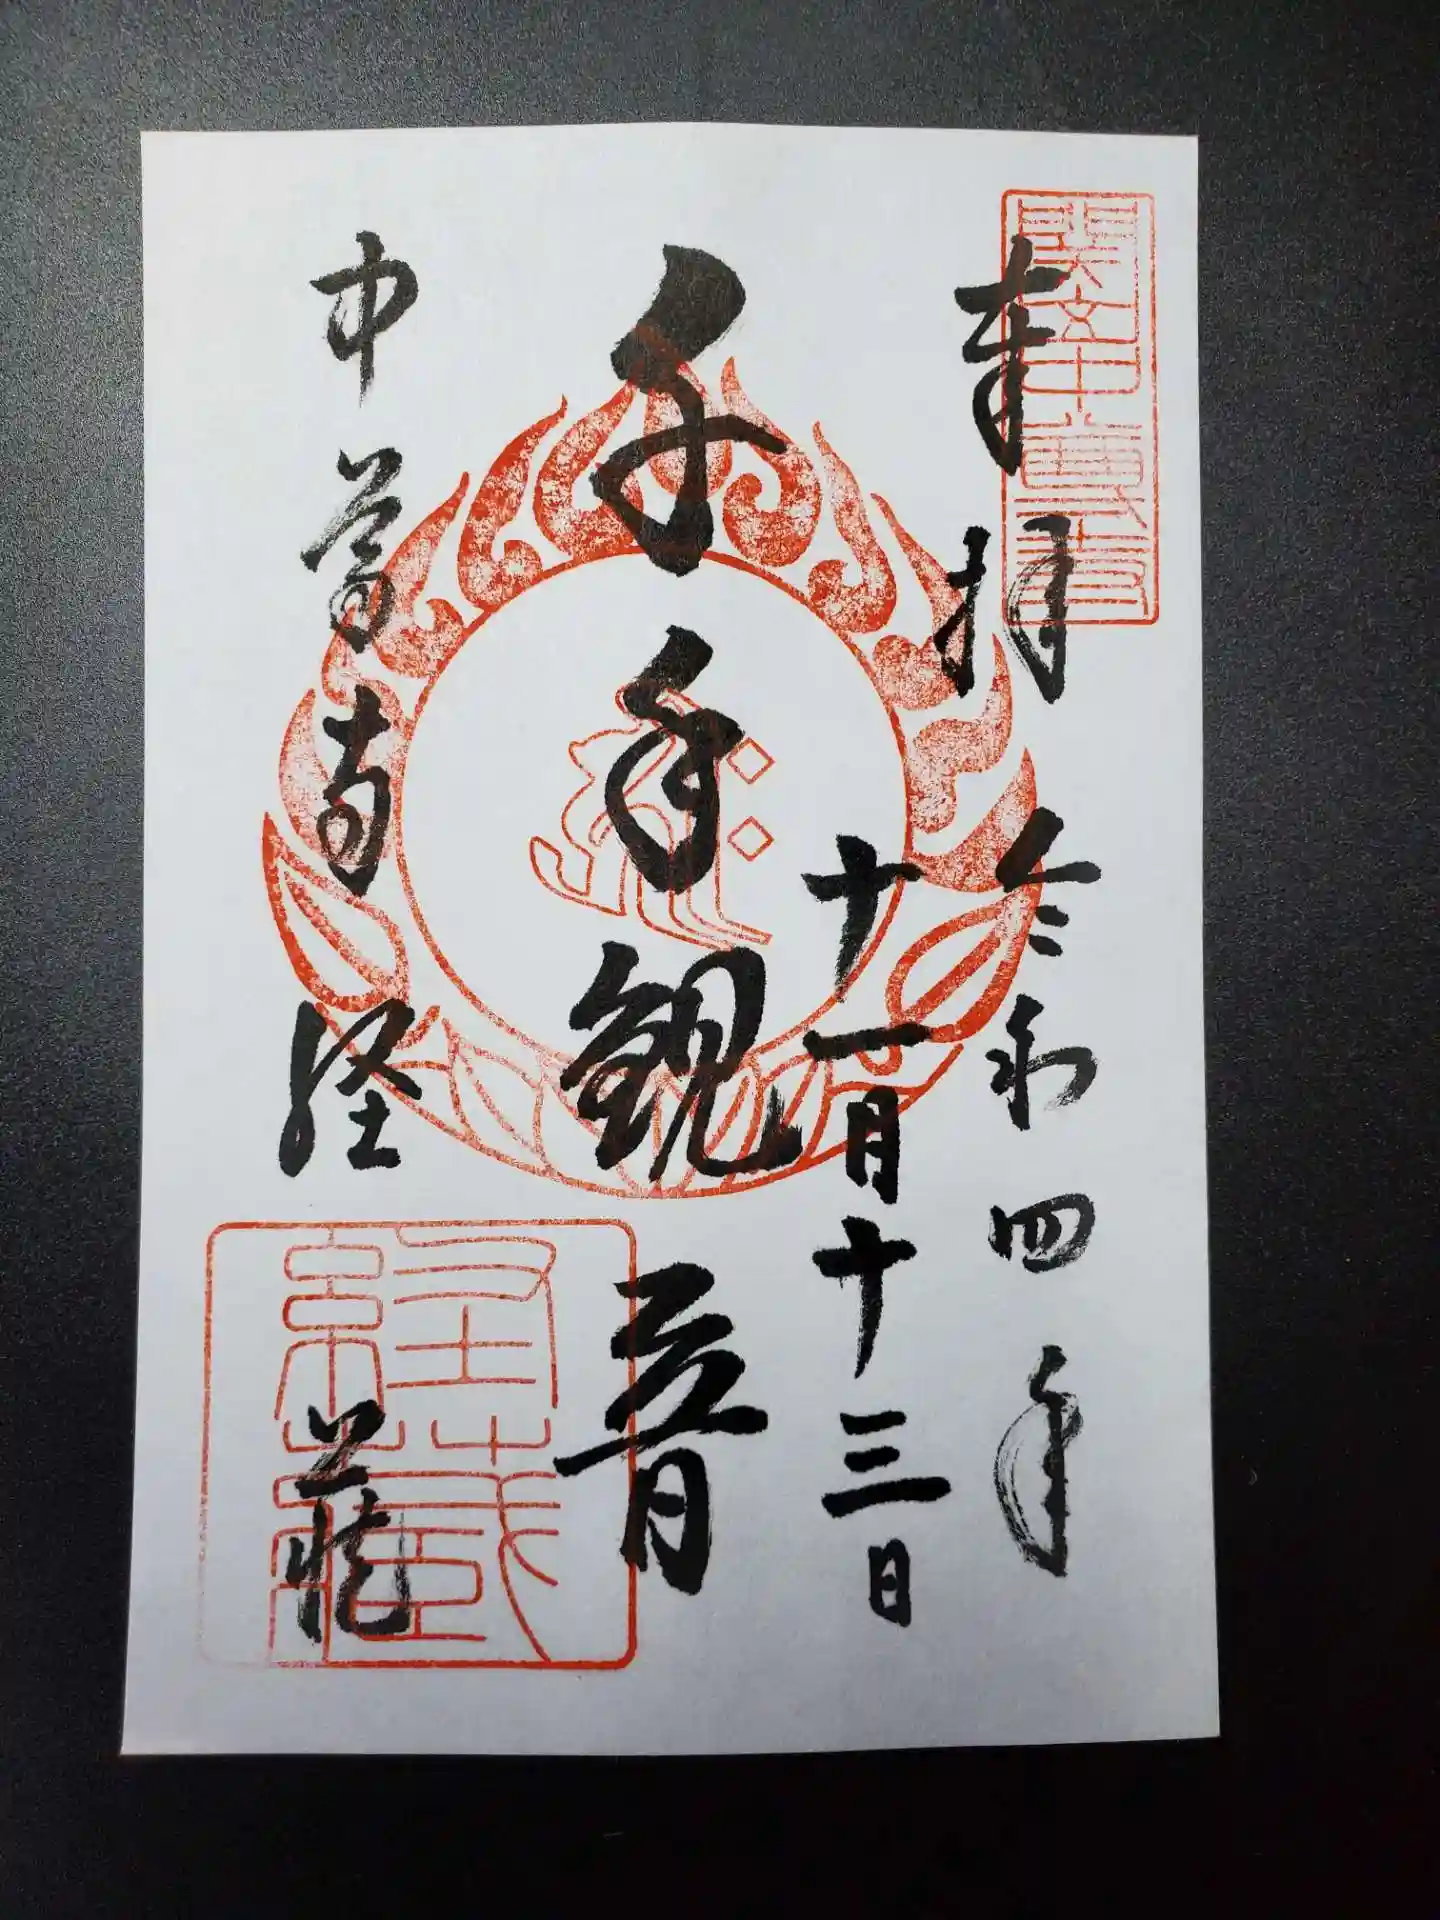 奉拝
令和四年
十一月十三日
千手観音
中尊寺経蔵
経蔵